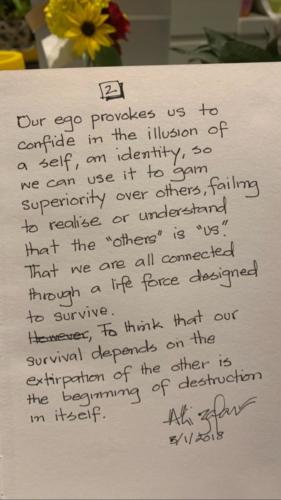 2
Our ego provokes us to
confide in the illusion of
a self, an identity, so
we can use it to gain
superiority over others, failing
to realise or understand
that the "others" is "us".
That we are all connected
through a life force designed
to survive.
However, To think that our
survival depends on the
extirpation of the other is
the beginning of destruction
in itself.
3/1/2018